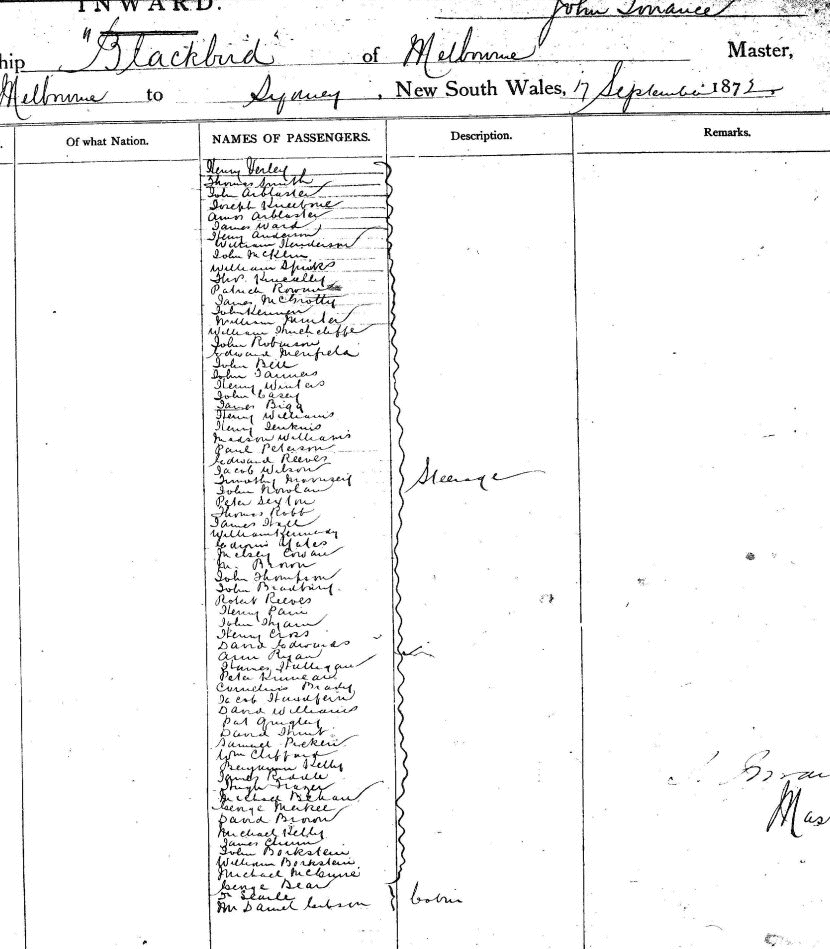 INWARD.
John Torrance
hip "Blackbird" of Melbourne Master,
Melbourne to Sydney, New South Wales, 17 September 1872.
Of what Nation. NAMES OF PASSENGERS. Description. Remarks.
Henry Verley
Thomas Smith
John Arblaster
Joseph Kneebone
Amos Arblaster
James Ward
Henry Anderson
William Henderson
John
William Spinks
Thos.
Patrick
James McGrotty
John
William Hunter
William Hinchcliffe
John Robinson
Edward Merifield
John Bell
John
Henry Winters
John Casey
James Bigg
Henry Williams
Henry Jenkins
Madson Williams
Paul Peterson
Edward Reeves
Jacob Wilson
Timothy
Steerage
John Nowlan
Peter Sexton
Thomas Robb
James Hall
William Kennedy
Edwin Yates
Cowan
Brown
John Thompson
John Bradbury
Robert Reeves
Henry Pain
John
Henry Cross
David Edwards
Ann Ryan
Hulligan
Peter
Cornelius Brady
Jacob
David Williams
Pat Quigley
David Hunt
Samuel
Wm Clifford
Benjamin Kelly
James Riddle
Hugh Frazer
Michael Behan
George McKee
David Brown
Michael Kelly
James
John Borkstein
William Borkstein
Michael McGuire
George Bear
Searle
Mr Daniel
Cabin
Mas